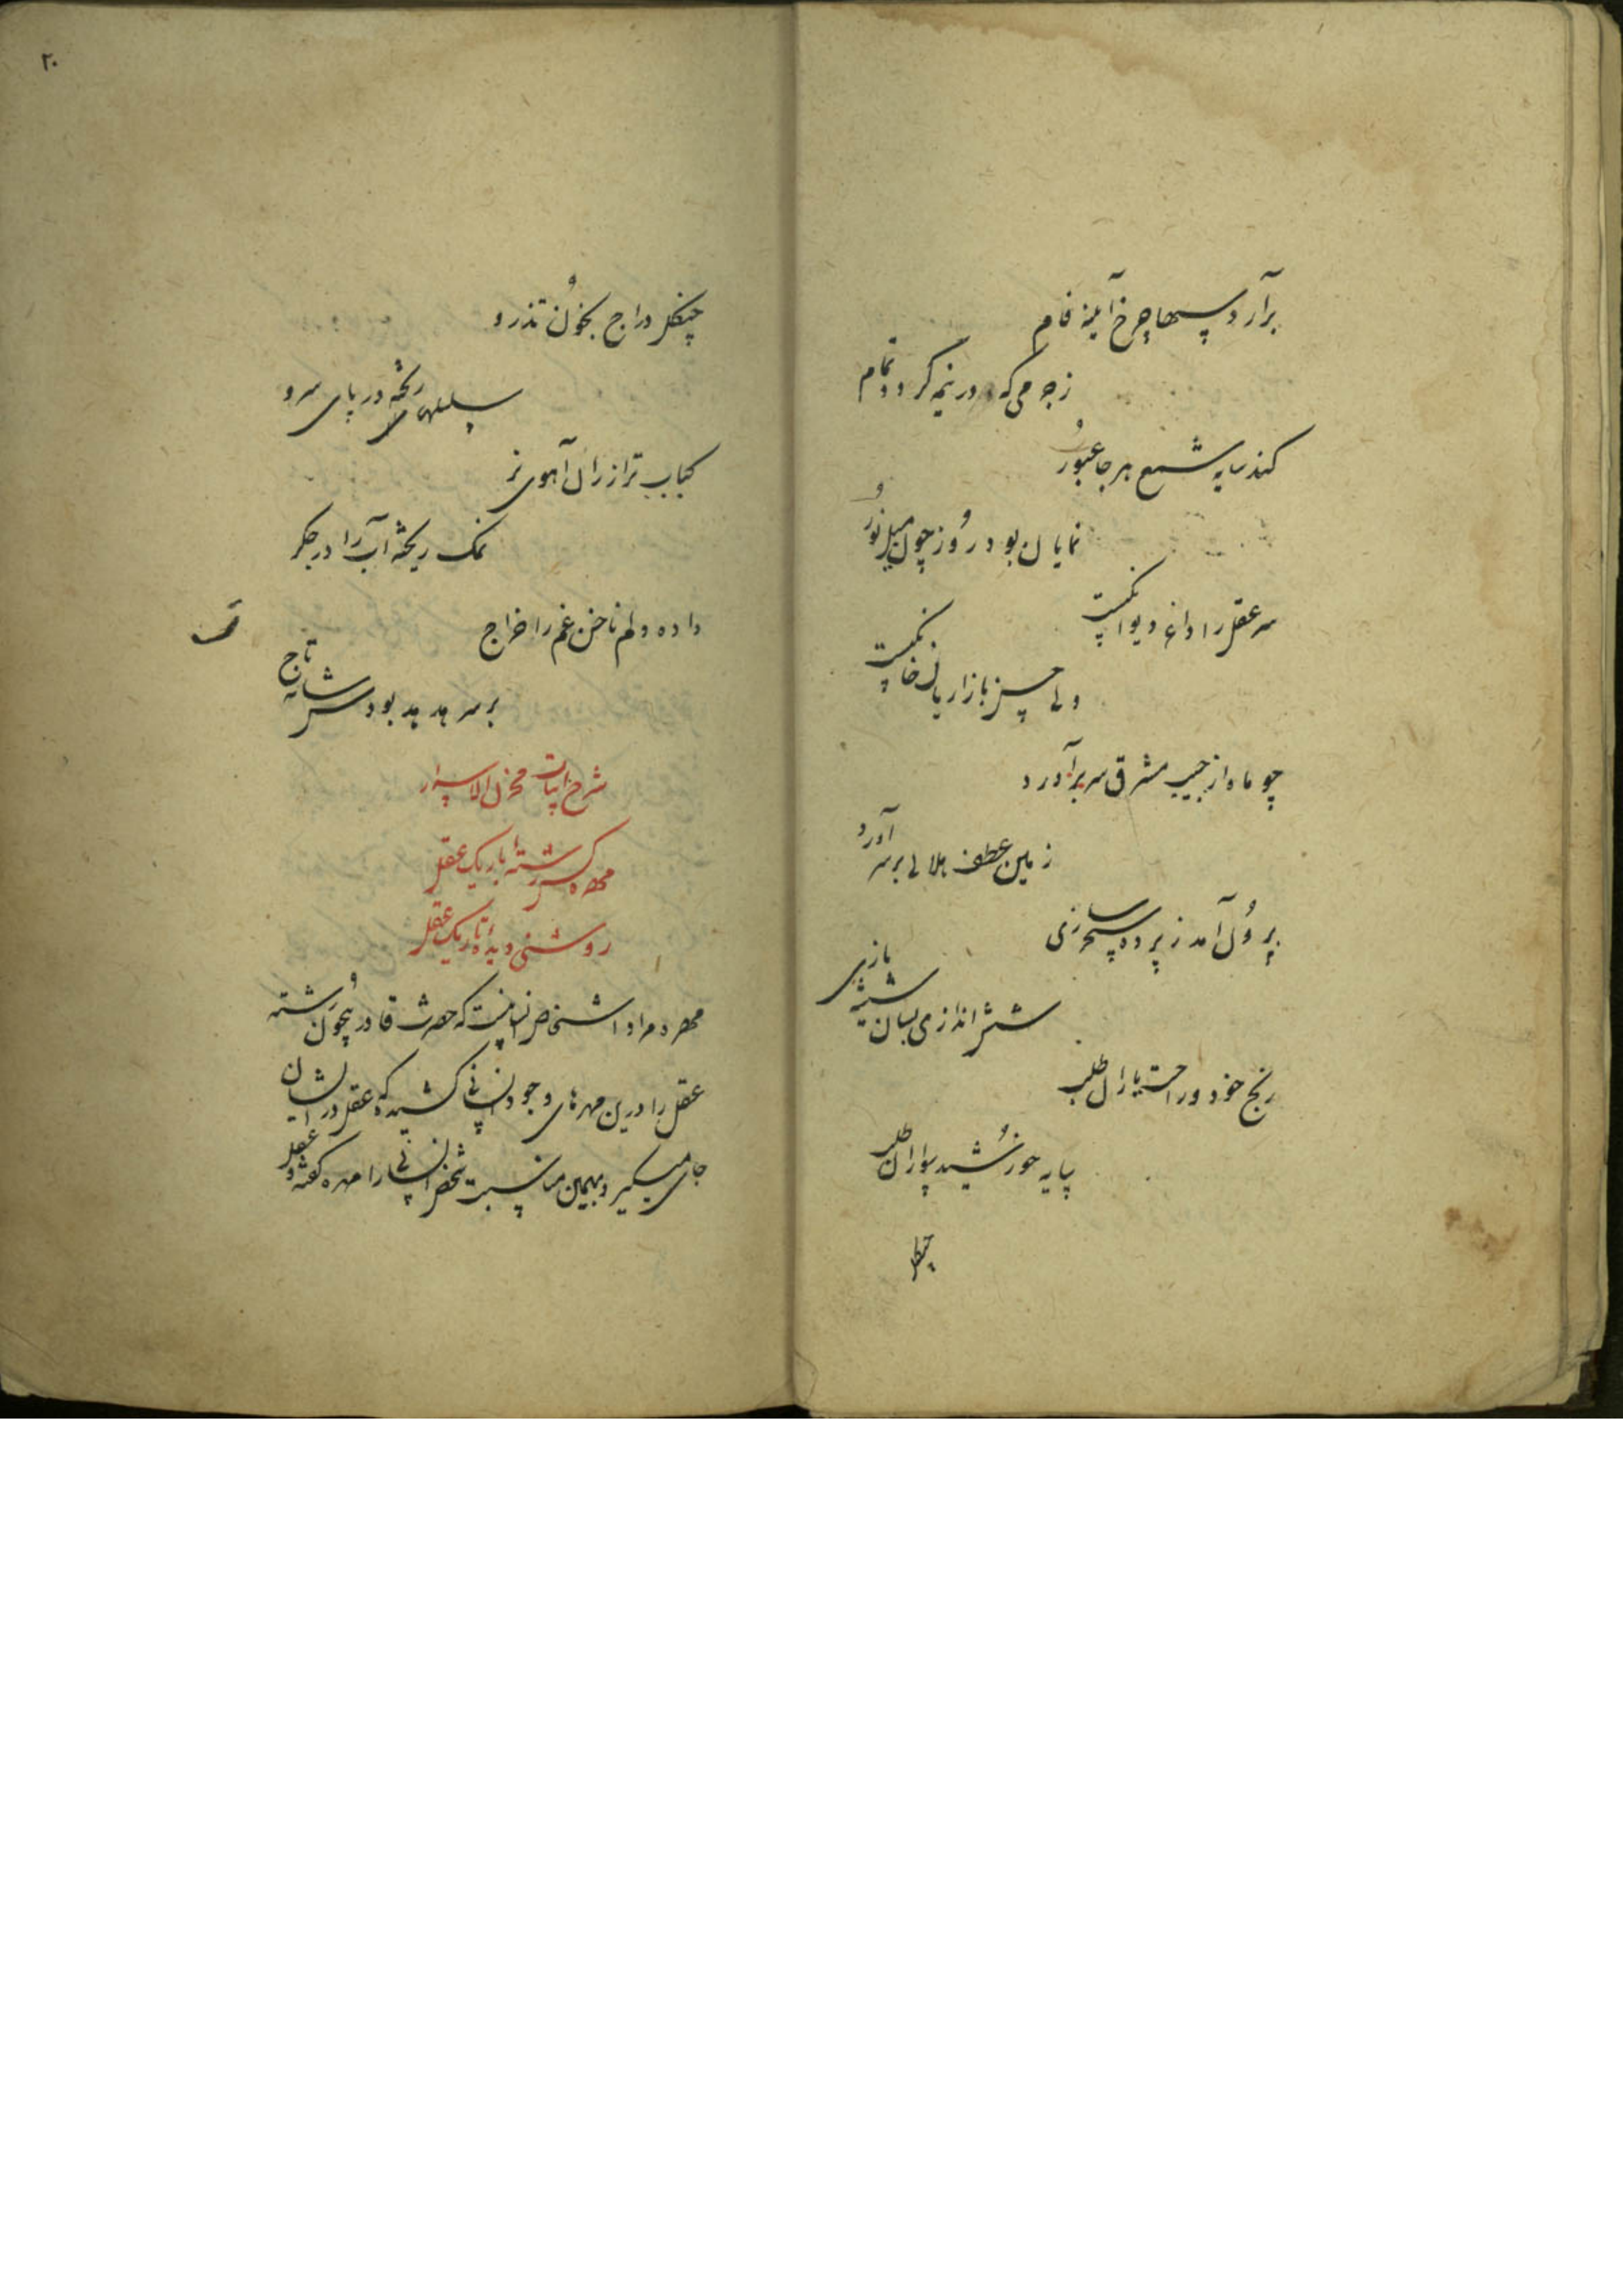 برآرد سپها چرخ آینه فام
ز جرمی که در نیمه گردد تمام
کند سایه شمع هر جا عبور
نمایان بود روز چون میل نور
سر عقل را داغ دیوانگیست
ولی حسن بازاریان خانگیست
چو ماه از جیب مشرق سر برآورد
زمین عطف هلالی بر سر آورد
برون آمد ز پرده سحرسازی
شش اندازی بسان شیشه بازی
رنج خود و راحت یاران طلب
سایه خورشید سواران طلب
چنگل
چنگل دراج بخون تذرو
سلسلهای ریخته در پای سرو
کباب تر از ران آهوی نر
نمک ریخته آب را در جگر
داده دلم ناخن غم را خراج
بر سر هدهد بود شانه تاج
شرح ابیات مخزن الاسرار
مهره کش رشته باریک عقل
روشنی دیده تاریک عقل
مهره مراد اشخاص انسانیست که حضرت قادر بیچون رشته
عقل را درین مهرهای وجود انسانی کشیده که عقل در ایشان
جای میگیرد و بهمین مناسبت شخص انسانی را مهره گفته و عقل